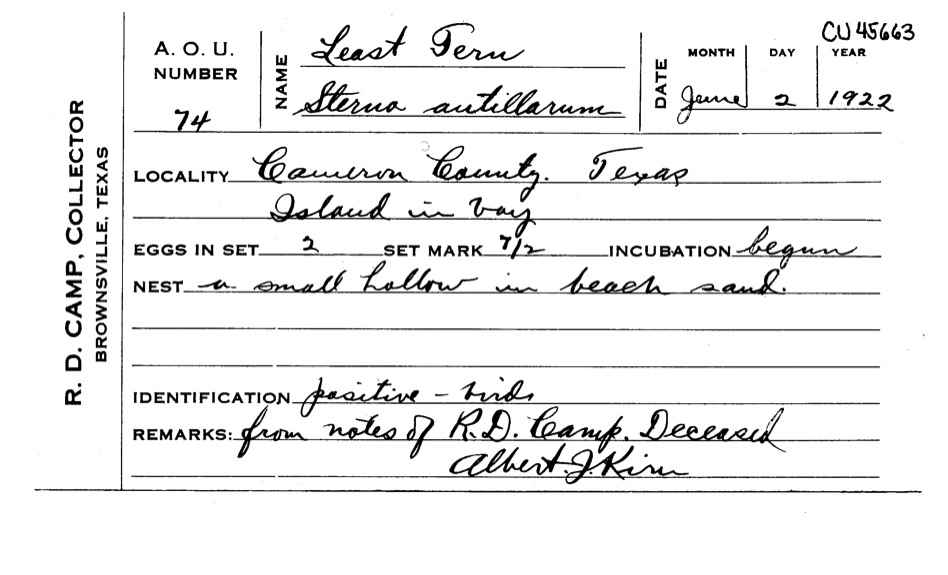 CU 45663
A. O. U. NUMBER 74
NAME Least Tern
Sterna antillarum
DATE MONTH June DAY 2 YEAR 1922
R. D. CAMP, COLLECTOR
BROWNSVILLE, TEXAS
LOCALITY Cameron County. Texas
Island in bay
EGGS IN SET 2 SET MARK 7/2 INCUBATION begun
NEST a small hollow in beach sand.
IDENTIFICATION positive - birds
REMARKS: from notes of R.D. Camp. Deceased
Albert J. Kirn